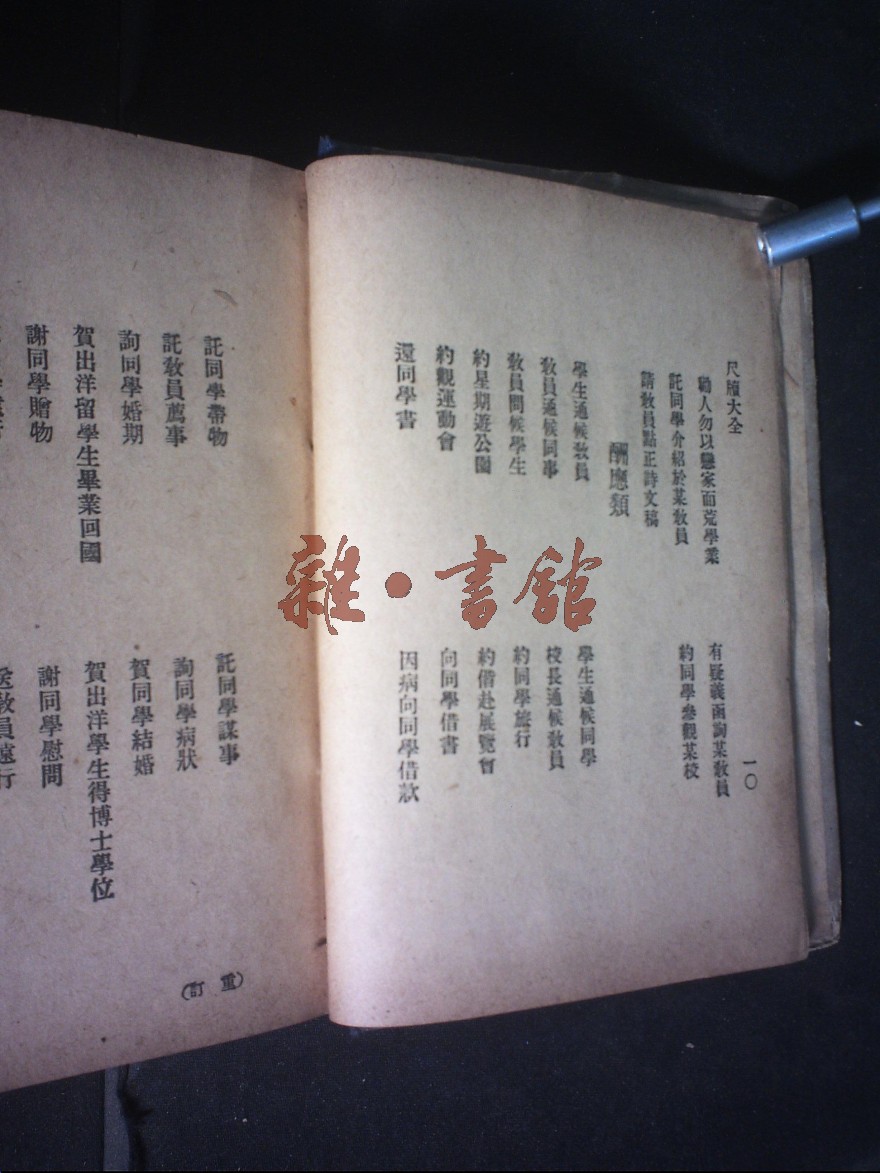 尺牘大全
一〇
勸人勿以戀家而荒學業
有疑義函詢某敎員
託同學介紹於某敎員
約同學參觀某校
請敎員點正詩文稿
酬應類
學生通候敎員
學生通候同學
敎員通候同事
校長通候敎員
敎員問候學生
約同學旅行
約星期遊公園
約偕赴展覽會
約觀運動會
向同學借書
還同學書
因病向同學借款
託同學帶物
託同學謀事
託敎員薦事
詢同學病狀
詢同學婚期
賀同學結婚
賀出洋留學生畢業回國
賀出洋學生得博士學位
謝同學贈物
謝同學慰問
送敎員遠行
(重訂)
雜·書館